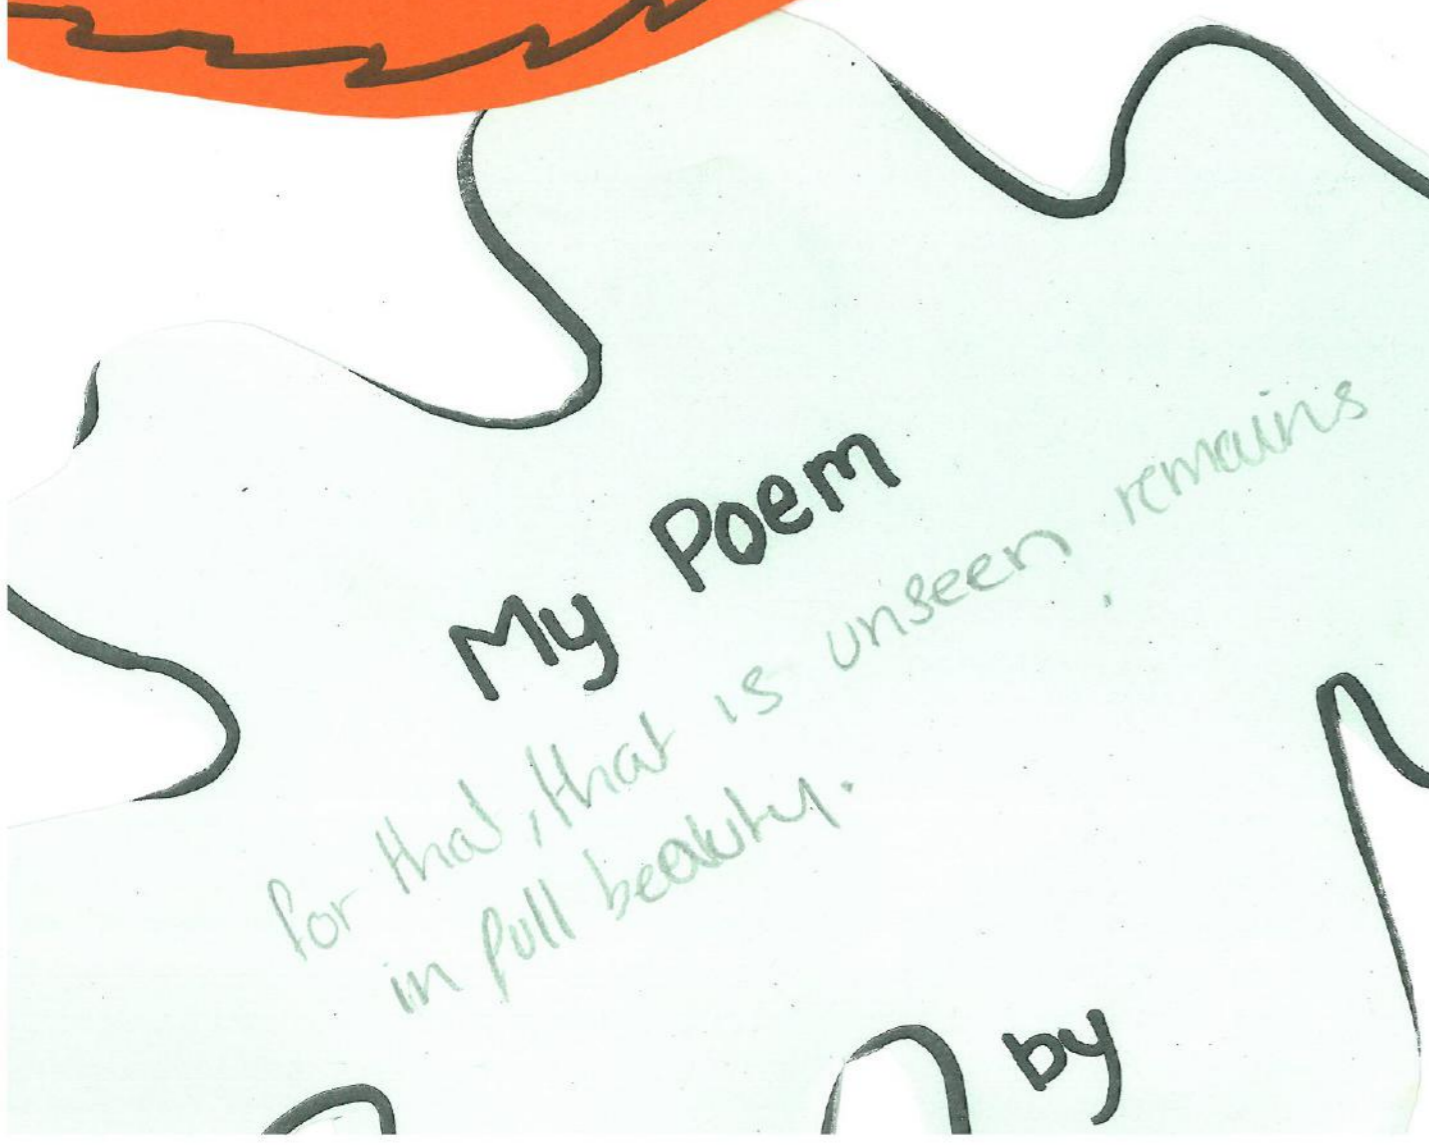 My Poem
for that, that is unseen, remains
in full beauty.
by